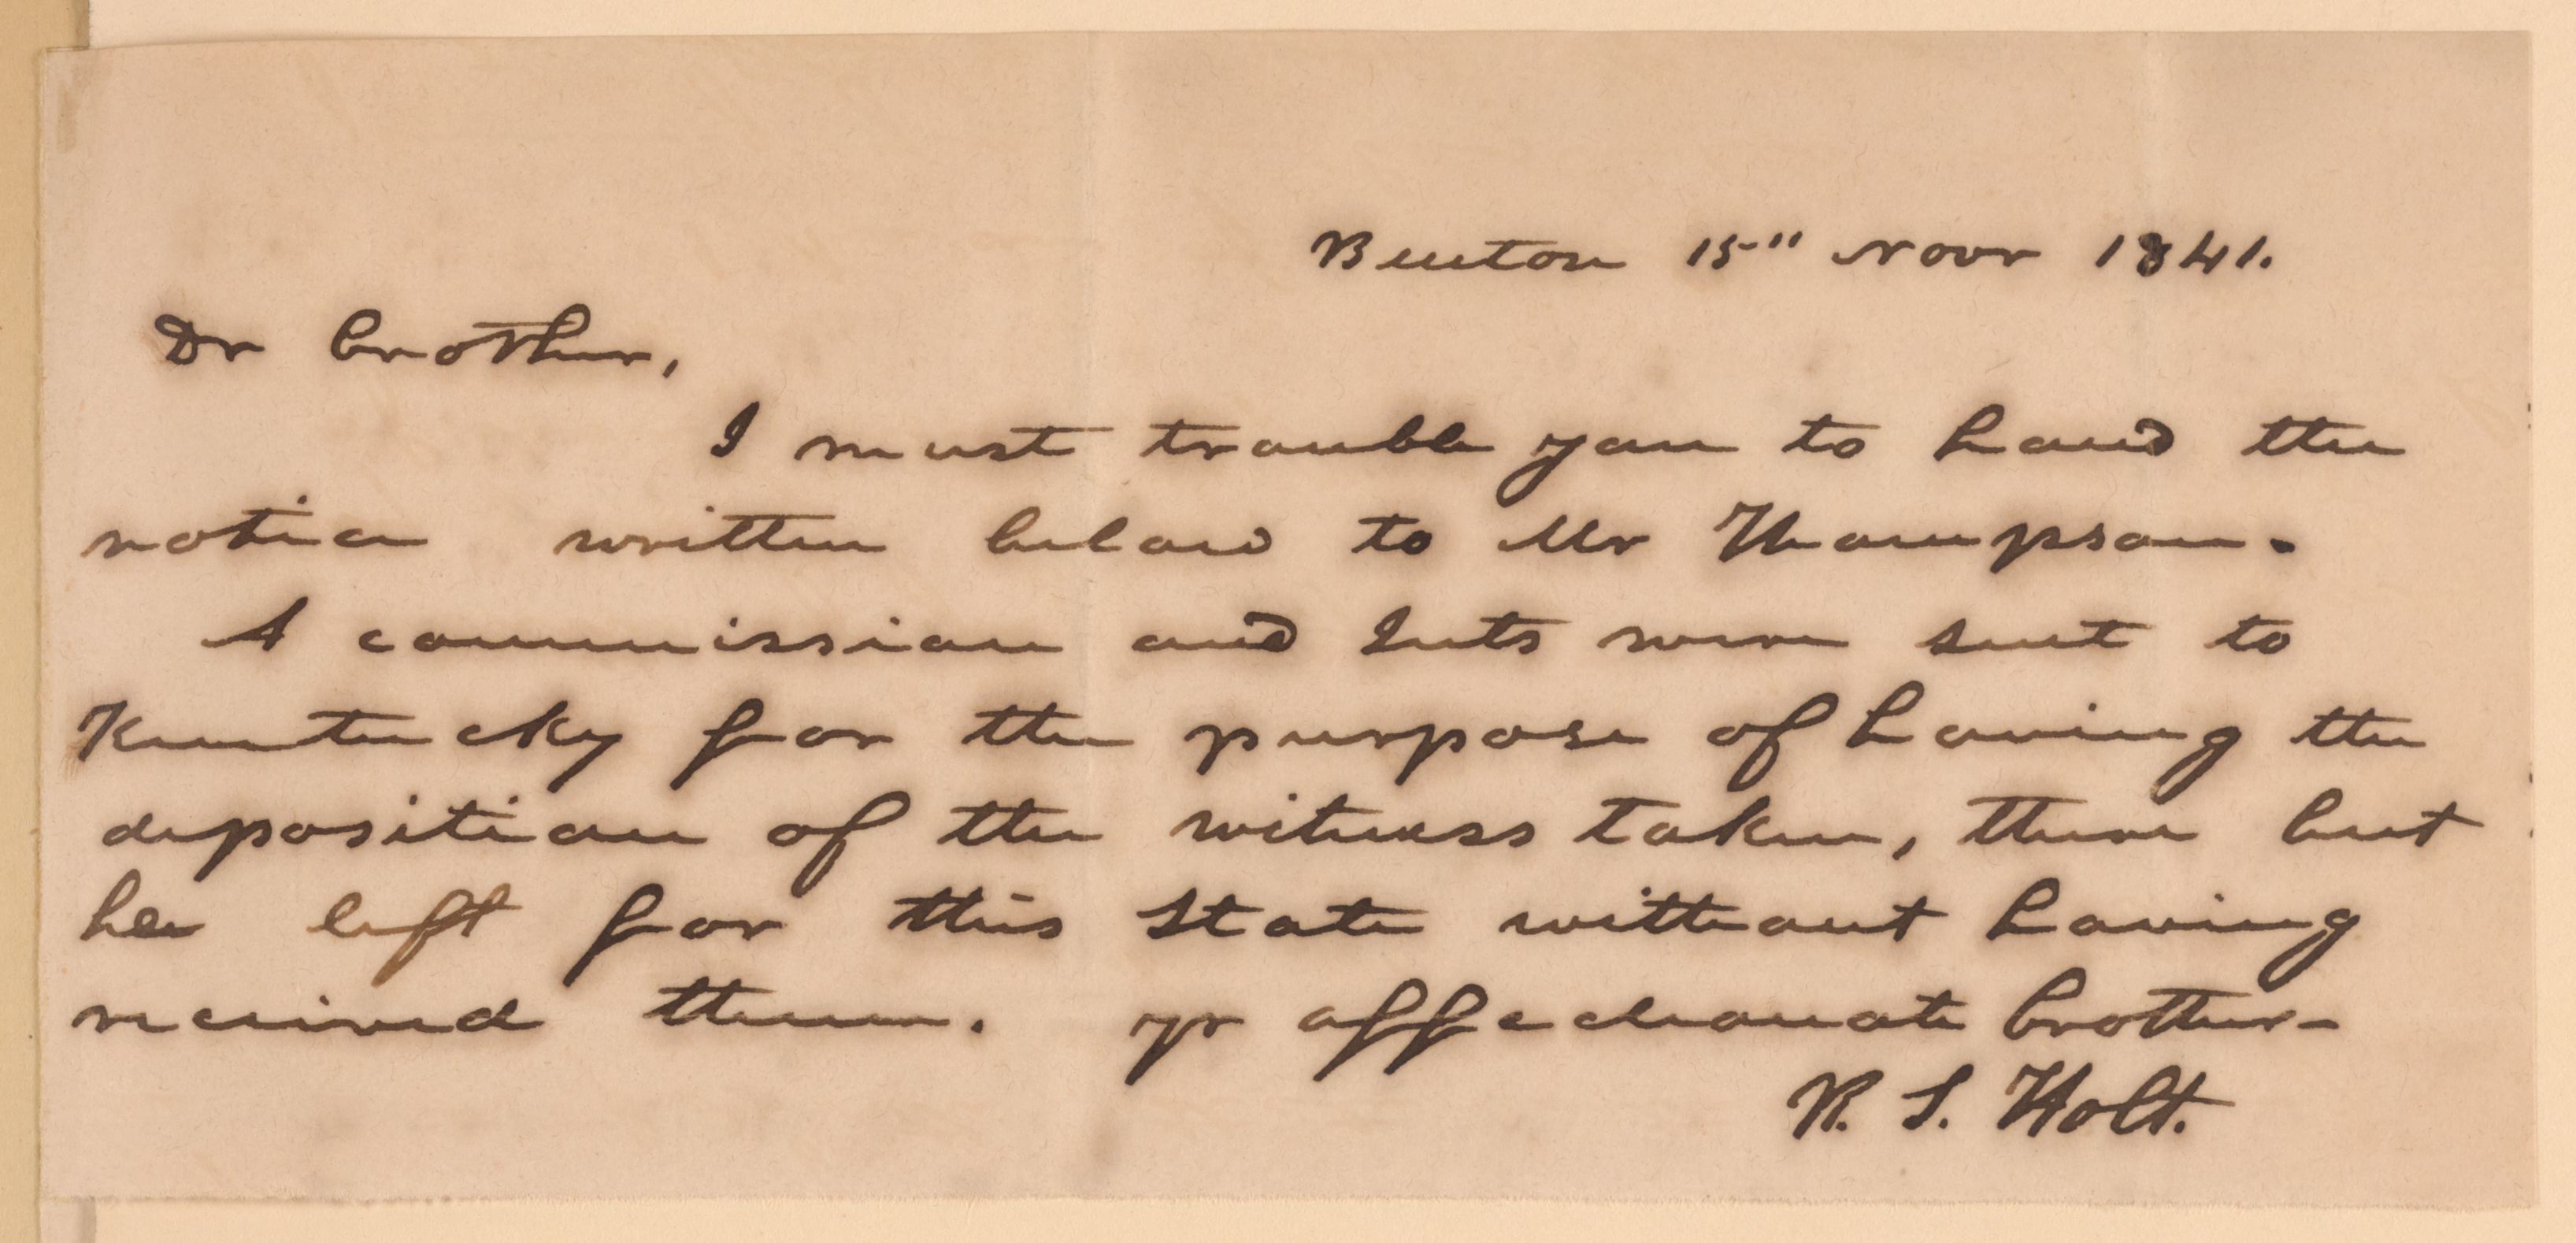 Benton 15" Novr 1841.
Dr brother,
I must trouble you to hand the
notice written below to Mr Thompson.
A commission and Ints were sent to
Kentucky for the purpose of having the
deposition of the witness taken, there but
he left for this State without having
received them. yr affectionate brother-
R. S. Holt.